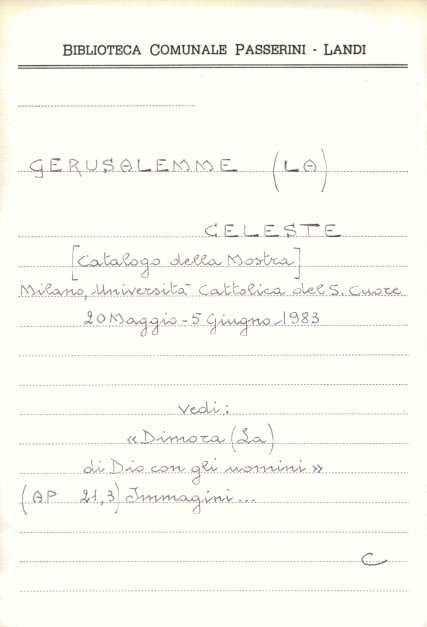 BIBLIOTECA COMUNALE PASSERINI - LANDI
GERUSALEMME (LA)
CELESTE
[Catalogo della Mostra]
Milano, Università Cattolica del S. Cuore
20 Maggio - 5 Giugno 1983
Vedi:
«Dimora (La)
di Dio con gli uomini»
(AP 21,3) Immagini...
C